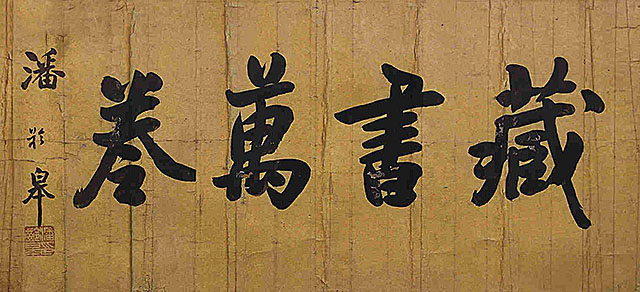 藏書萬卷
潘龄皋